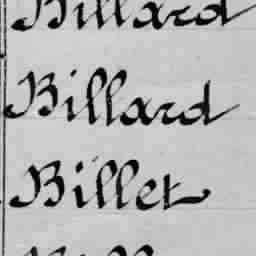 Billard
Billard
Billet